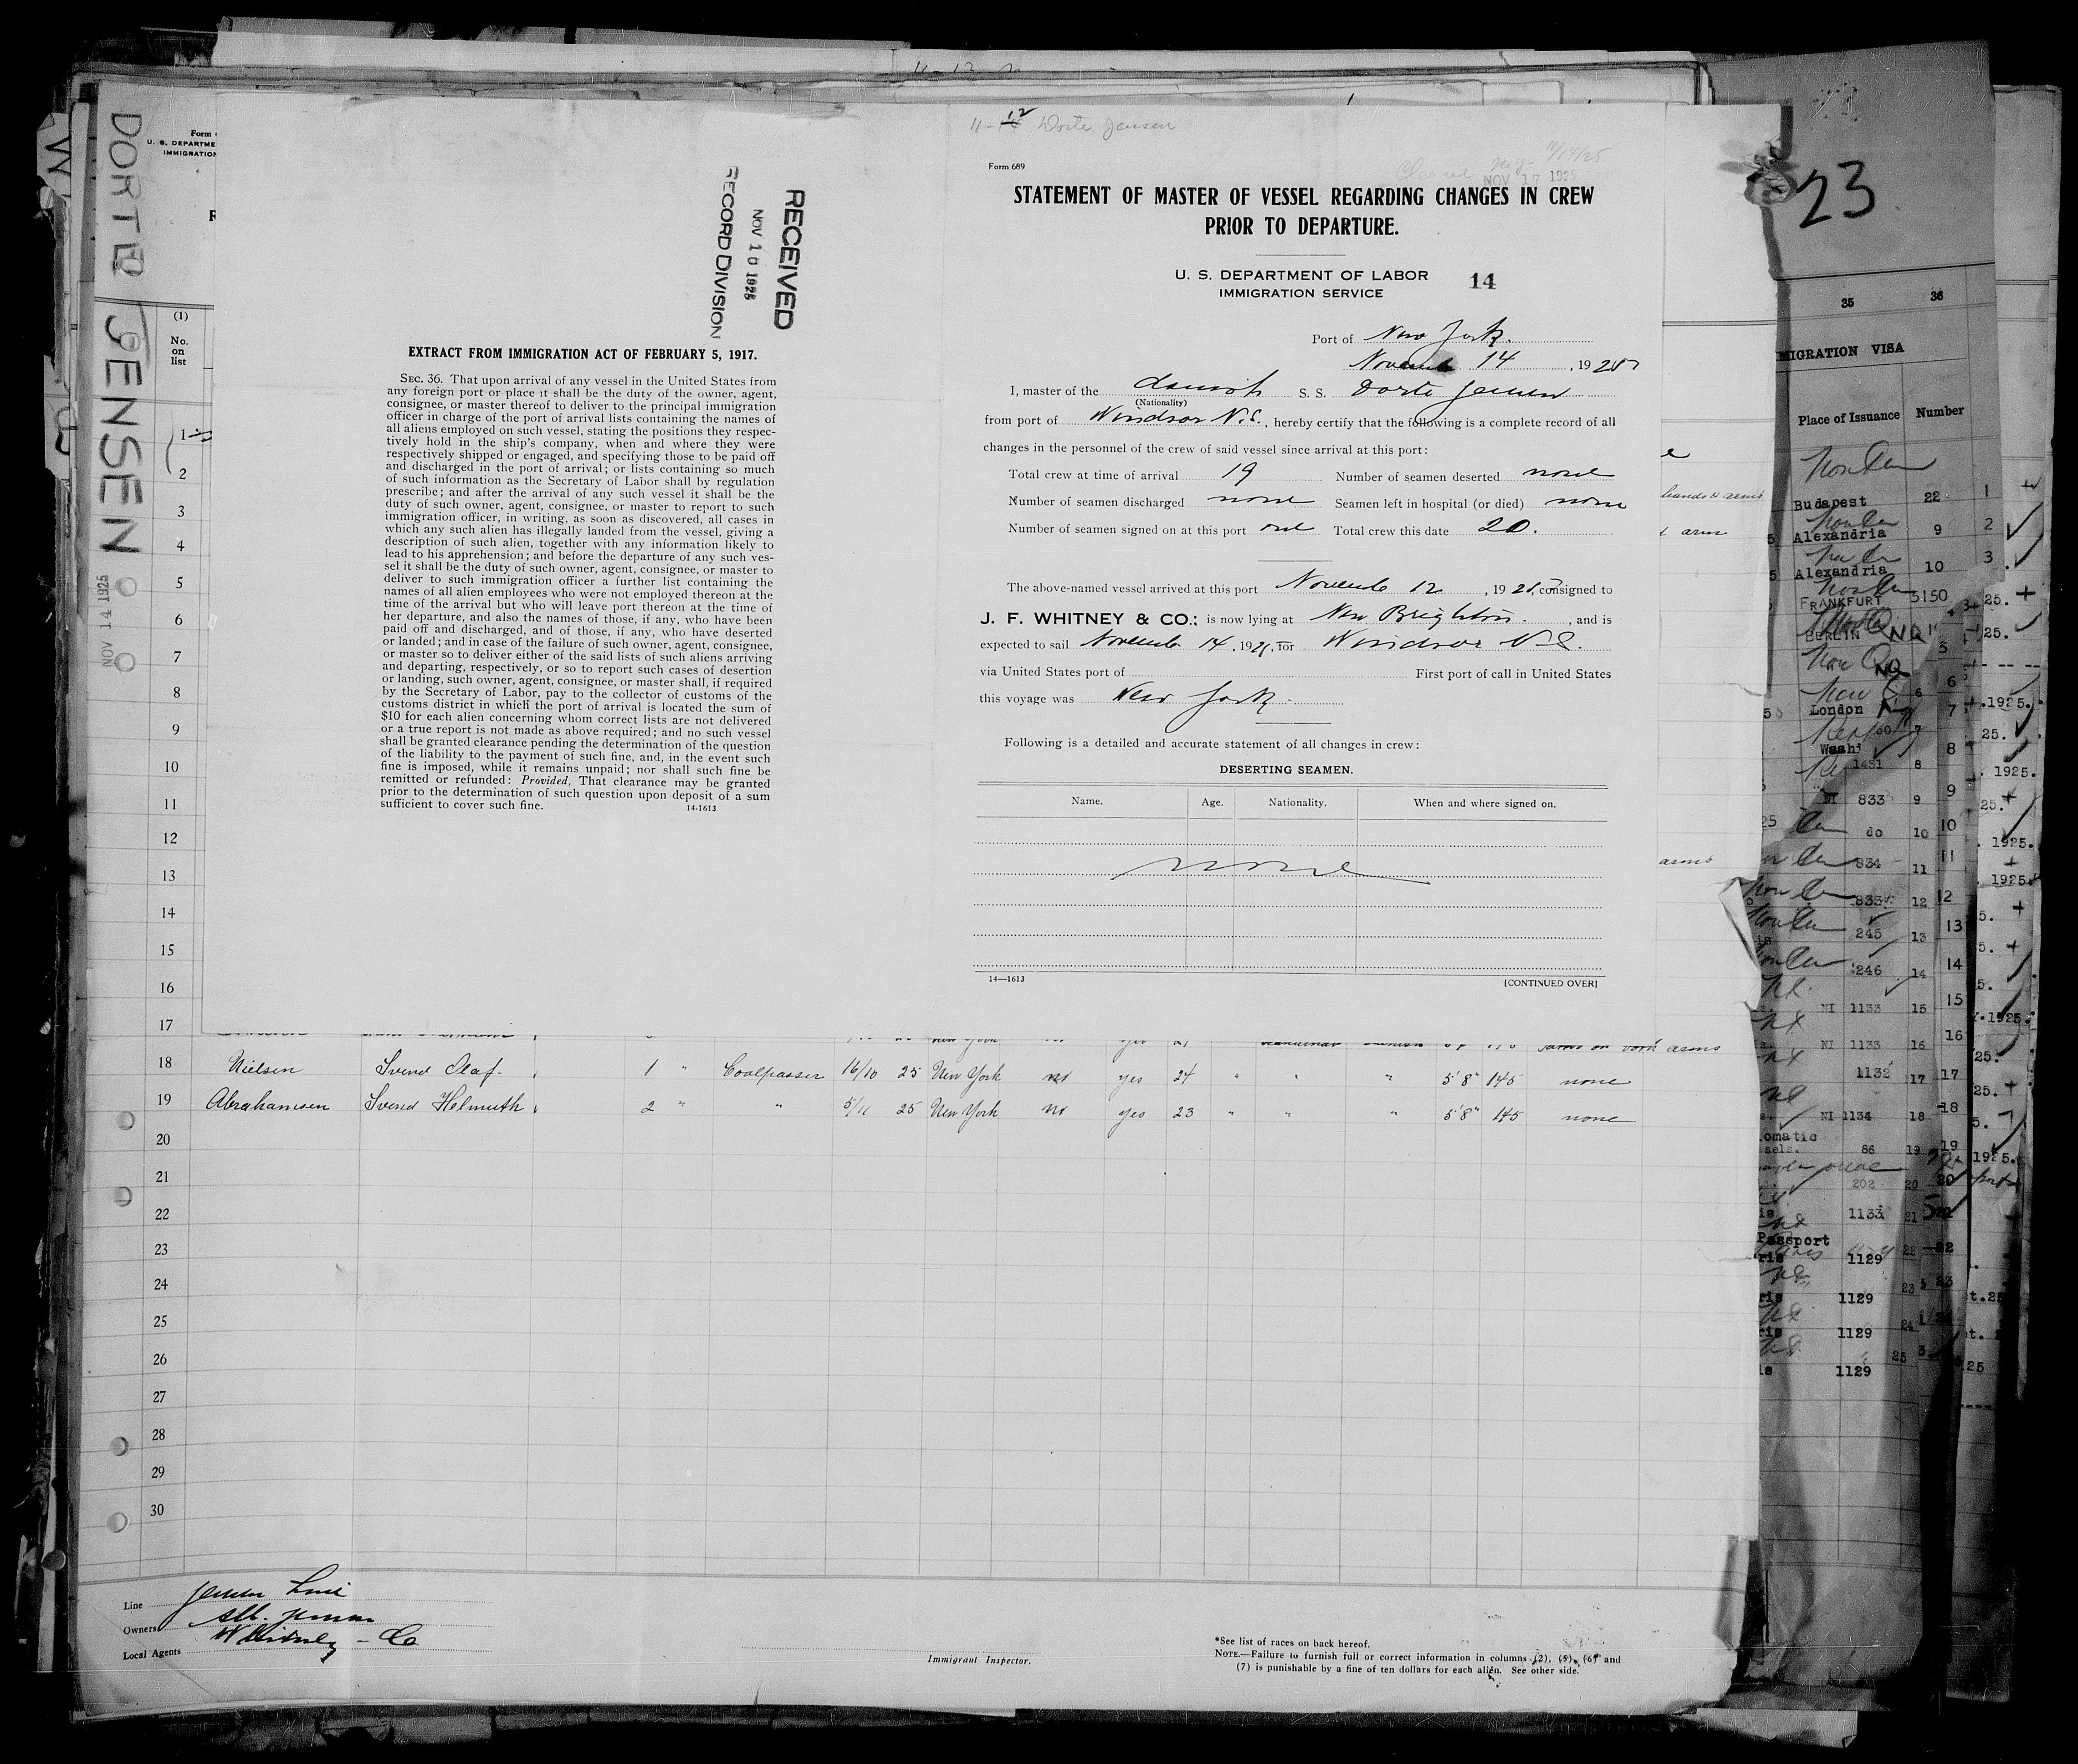 DORTE JENSEN
NOV 14 1925
RECEIVED
NOV 10 1925
RECORD DIVISION
EXTRACT FROM IMMIGRATION ACT OF FEBRUARY 5, 1917.
SEC. 36. That upon arrival of any vessel in the United States from
any foreign port or place it shall be the duty of the owner, agent,
consignee, or master thereof to deliver to the principal immigration
officer in charge of the port of arrival lists containing the names of
all aliens employed on such vessel, stating the positions they respec-
tively hold in the ship's company, when and where they were
respectively shipped or engaged, and specifying those to be paid off
and discharged in the port of arrival; or lists containing so much
of such information as the Secretary of Labor shall by regulation
prescribe; and after the arrival of any such vessel it shall be the
duty of such owner, agent, consignee, or master to report to such
immigration officer, in writing, as soon as discovered, all cases in
which any such alien has illegally landed from the vessel, giving a
description of such alien, together with any information likely to
lead to his apprehension; and before the departure of any such ves-
sel it shall be the duty of such owner, agent, consignee, or master to
deliver to such immigration officer a further list containing the
names of all alien employees who were not employed thereon at the
time of the arrival but who will leave port thereon at the time of
her departure, and also the names of those, if any, who have been
paid off and discharged, and of those, if any, who have deserted
or landed; and in case of the failure of such owner, agent, consignee,
or master so to deliver either of the said lists of such aliens arriving
and departing, respectively, or so to report such cases of desertion
or landing, such owner, agent, consignee, or master shall, if required
by the Secretary of Labor, pay to the collector of customs of the
customs district in which the port of arrival is located the sum of
$10 for each alien concerning whom correct lists are not delivered
or a true report is not made as above required; and no such vessel
shall be granted clearance pending the determination of the question
of the liability to the payment of such fine, and, in the event such
fine is imposed, while it remains unpaid; nor shall such fine be
remitted or refunded: Provided, That clearance may be granted
prior to the determination of such question upon deposit of a sum
sufficient to cover such fine. 14-1613
Dorte Jensen
Form 689
Cleared N.Y. 11/14/25
NOV 17 1925
STATEMENT OF MASTER OF VESSEL REGARDING CHANGES IN CREW
PRIOR TO DEPARTURE.
U. S. DEPARTMENT OF LABOR
IMMIGRATION SERVICE
14
Port of New York.
November 14, 1925
I, master of the danish S. S. Dorte Jensen
(Nationality)
from port of Windsor N.S., hereby certify that the following is a complete record of all
changes in the personnel of the crew of said vessel since arrival at this port:
Total crew at time of arrival 19 Number of seamen deserted none
Number of seamen discharged none Seamen left in hospital (or died) none
Number of seamen signed on at this port one Total crew this date 20.
The above-named vessel arrived at this port November 12, 1925, consigned to
J. F. WHITNEY & CO.; is now lying at New Brighton., and is
expected to sail November 14, 1925, for Windsor N.S.
via United States port of First port of call in United States
this voyage was New York.
Following is a detailed and accurate statement of all changes in crew:
DESERTING SEAMEN.
Name. Age. Nationality. When and where signed on.
none
14—1613 [CONTINUED OVER]
(1)
No.
on
list
1
2
3
4
5
6
7
8
9
10
11
12
13
14
15
16
17
18 Nielsen Svend Olaf 1 " Coalpasser 16/10 25 New York no yes 24 " " " 5'8" 145 none
19 Abrahamsen Svend Helmuth 2 " " 5/11 25 New York no yes 23 " " " 5'8" 145 none
20
21
22
23
24
25
26
27
28
29
30
Line Jensen Line
Owners Alb. Jensen
Local Agents Whitney - Co
Immigrant Inspector.
*See list of races on back hereof.
NOTE.—Failure to furnish full or correct information in columns (2), (5), (6) and
(7) is punishable by a fine of ten dollars for each alien. See other side.
23
35 36
MIGRATION VISA
Place of Issuance Number
Budapest 22 1
Alexandria 9 2
Alexandria 10 3
FRANKFURT 5150
BERLIN
London
Wash
1431 8
NI 833 9
do 10
834 11
835 12
245 13
246 14
NI 1133 15
NI 1133 16
1132 17
NI 1134 18
86 19
202 20
1133 21
Passport
1129
1129
1129
1129